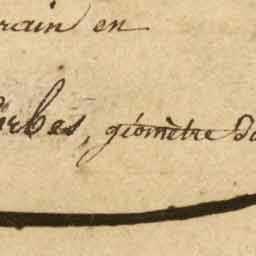 rain en
rbes, géomètre D